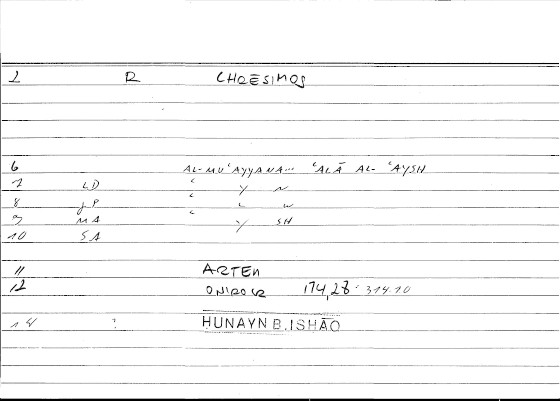 1 R CHRĒSIMOS
6 AL-MUʿAYYANA... ʿALĀ AL-ʿAYSH
7 LD ʿ Y N
8 JP ʿ L W
9 MA ʿ Y SH
10 SA
11 ARTEM
12 ONIROCR 174,28 - 314.10
14 ? HUNAYN B. ISHĀQ